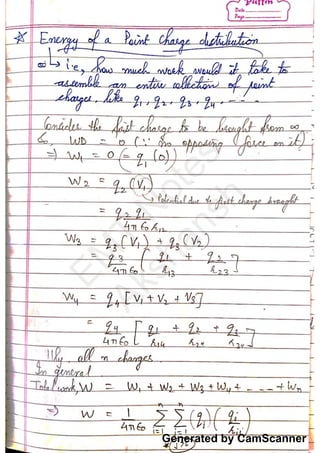 Date
Page
* Energy of a Point Charge distribution
∞ ↳ i.e, how much work would it take to
assemble an entire collection of point
charges, like q1, q2, q3, q4, - - - -
Consider the first charge to be brought from ∞
So, WD = 0 (∵ no opposing force on it)
⇒ W1 = 0 = q1(0)
W2 = q2(V1)
↳ Potential due to first charge brought
= q2 q1 / 4π∈0 r12
W3 = q3(V1) + q3(V2)
= q3/4π∈0 [q1/r13 + q2/r23]
W4 = q4 [V1 + V2 + V3]
= q4/4π∈0 [q1/r14 + q2/r24 + q3/r34]
lly all n charges.
In general
Total work, W = W1 + W2 + W3 + W4 + - - - + Wn
⇒ W = 1/4π∈0 n∑i=1 n∑j=1 (qi)(qj/rij)
Generated by CamScanner